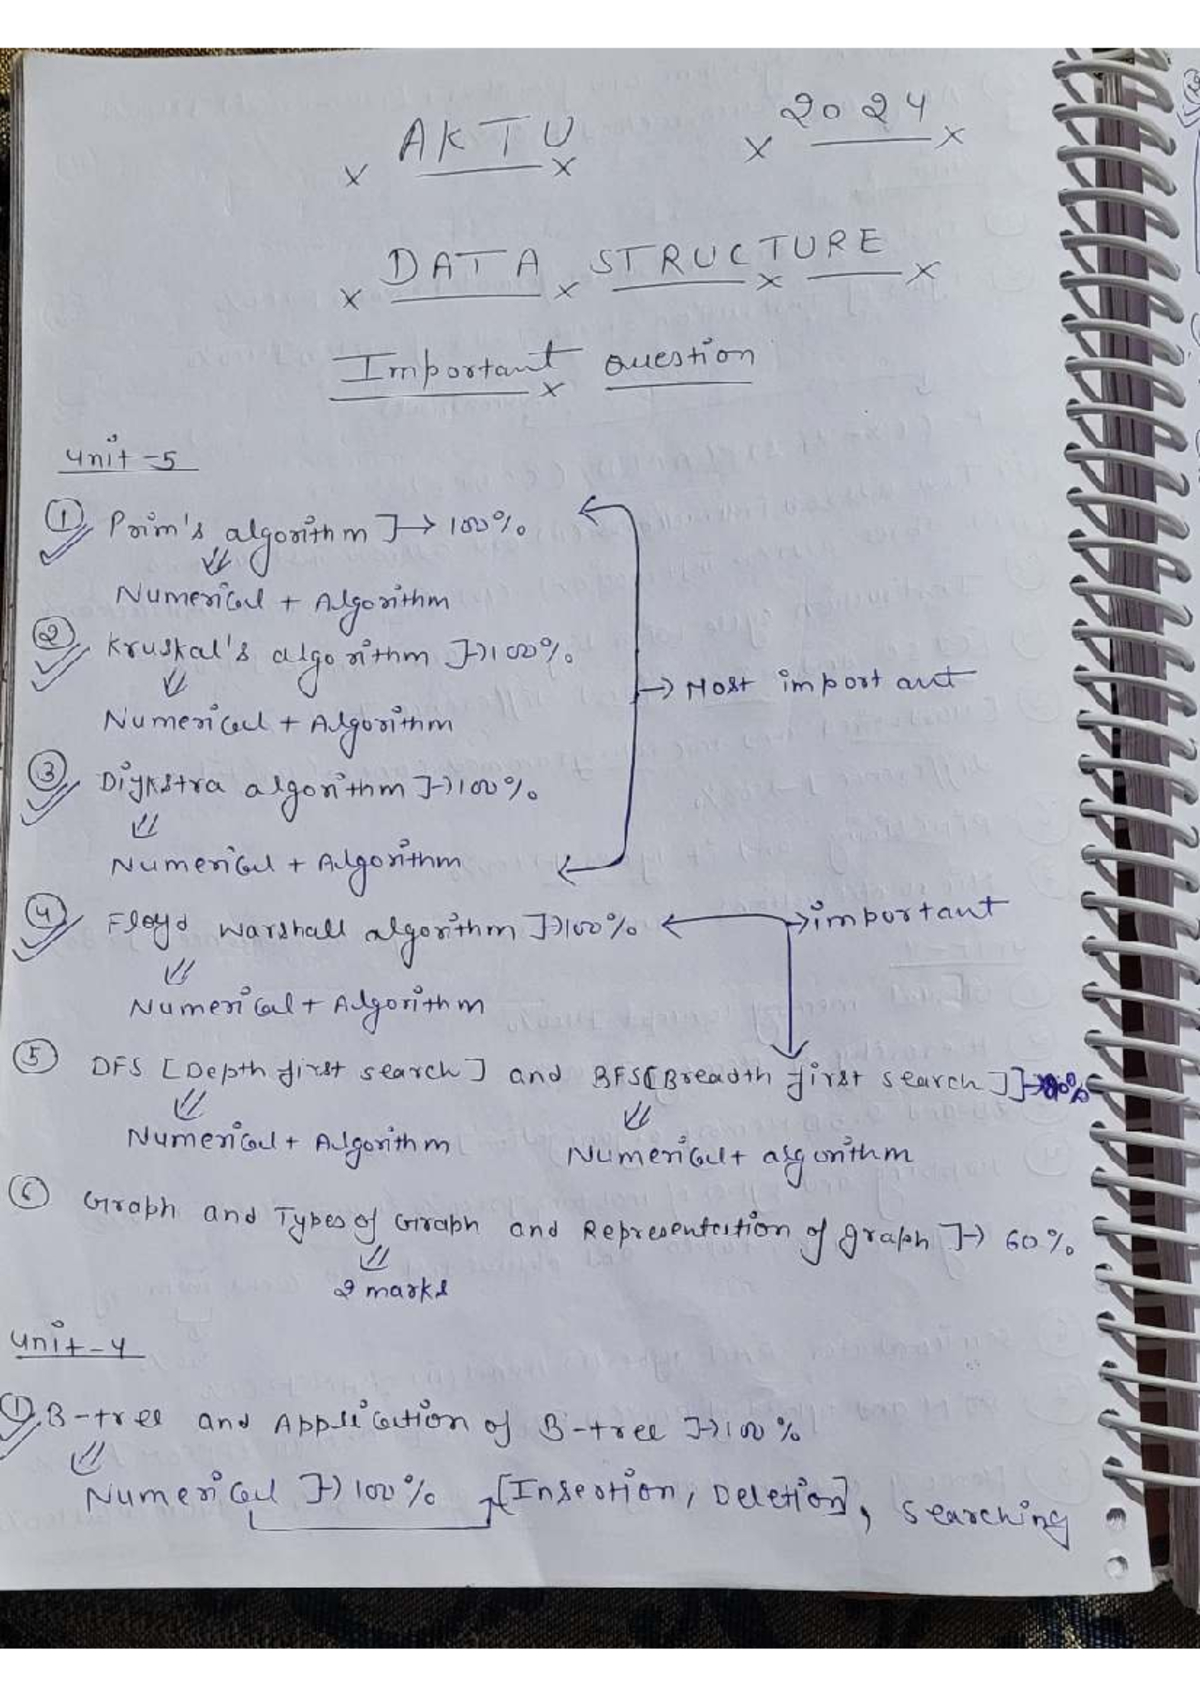 AKTU 2024
DATA STRUCTURE
Important Question
Unit-5
① Prim's algorithm ]→ 100%
Numerical + Algorithm
② Kruskal's algorithm ]→100%
Numerical + Algorithm
→ Most important
③ Dijkstra algorithm ]→100%
Numerical + Algorithm
④ Floyd Warshall algorithm ]→100% → important
Numerical + Algorithm
⑤ DFS [Depth first search] and BFS[Breadth first search]]→
Numerical + Algorithm Numerical + algorithm
⑥ Graph and Types of Graph and Representation of graph ]→ 60%
2 marks
Unit-4
① B-tree and Application of B-tree ]→100%
Numerical ]→ 100% [Insertion, Deletion], Searching